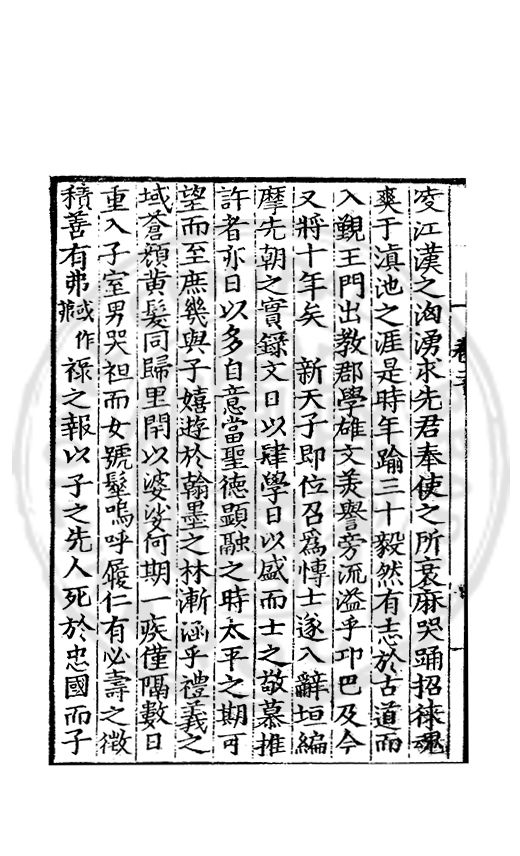 凌江漢之洶湧求先君奉使之所衰麻哭踊招徠魂
爽于滇池之涯是時年踰三十毅然有志於古道而
入覲王門出教郡學雄文美譽旁流溢乎邛巴及今
又將十年矣　新天子即位召為愽士遂入辭垣編
摩先朝之實錄文日以肆學日以盛而士之敬慕推
許者亦日以多自意當聖德顯融之時太平之期可
望而至庶幾與子嬉遊於翰墨之林漸涵乎禮義之
域蒼顏黄髮同歸里閈以婆娑何期一疾僅隔數日
重入子室男哭袒而女號髽嗚呼履仁有必壽之徵
積善有弗或作禄之報以子之先人死於忠國而子